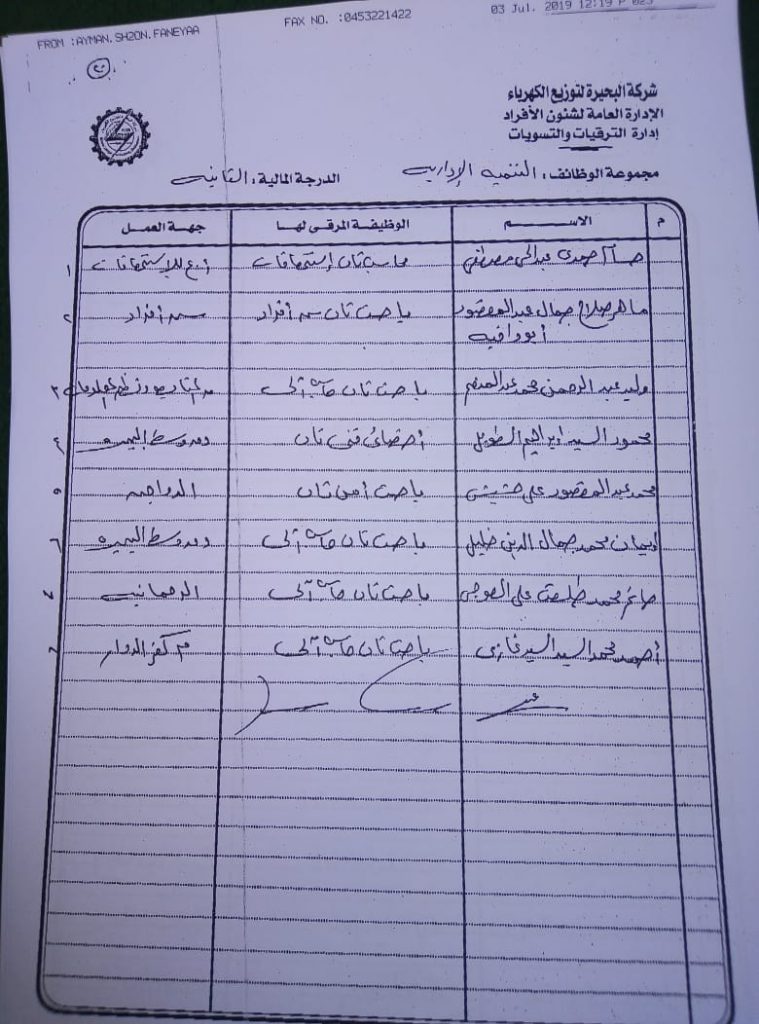 FROM :AYMAN.SH2ON.FANEYAA FAX NO. :0453221422 03 Jul. 2019 12:19 P 023
٢٠
شركة البحيرة لتوزيع الكهرباء
الإدارة العامة لشئون الأفراد
إدارة الترقيات والتسويات
مجموعة الوظائف : التنمية الإدارية الدرجة المالية : الثانية
م الاســـم الوظيفة المرقى لها جهـة العمـل
١ حمدى عبدالحى مصطفى محاسب ثان إستحقاقات
٢ ماهر صلاح جمال عبدالمقصود باحث ثان أفراد أفراد
أبو دافيه
٣ وليد عبد الرحمن محمد عبدالمنعم باحث ثان حاسب آلى
٤ محمود السيد ابراهيم الطويل أخصائى فنى ثان وسط البحيره
٥ محمد عبدالمقصود على حشيش باحث أمن ثان
٦ ايمان محمد جمال الدين خليل باحث ثان حاسب آلى وسط البحيره
٧ محمد طلعت على باحث ثان حاسب آلى الرحمانيه
٨ أحمد محمد السيد السيد غازى باحث ثان حاسب آلى كفر الدوار